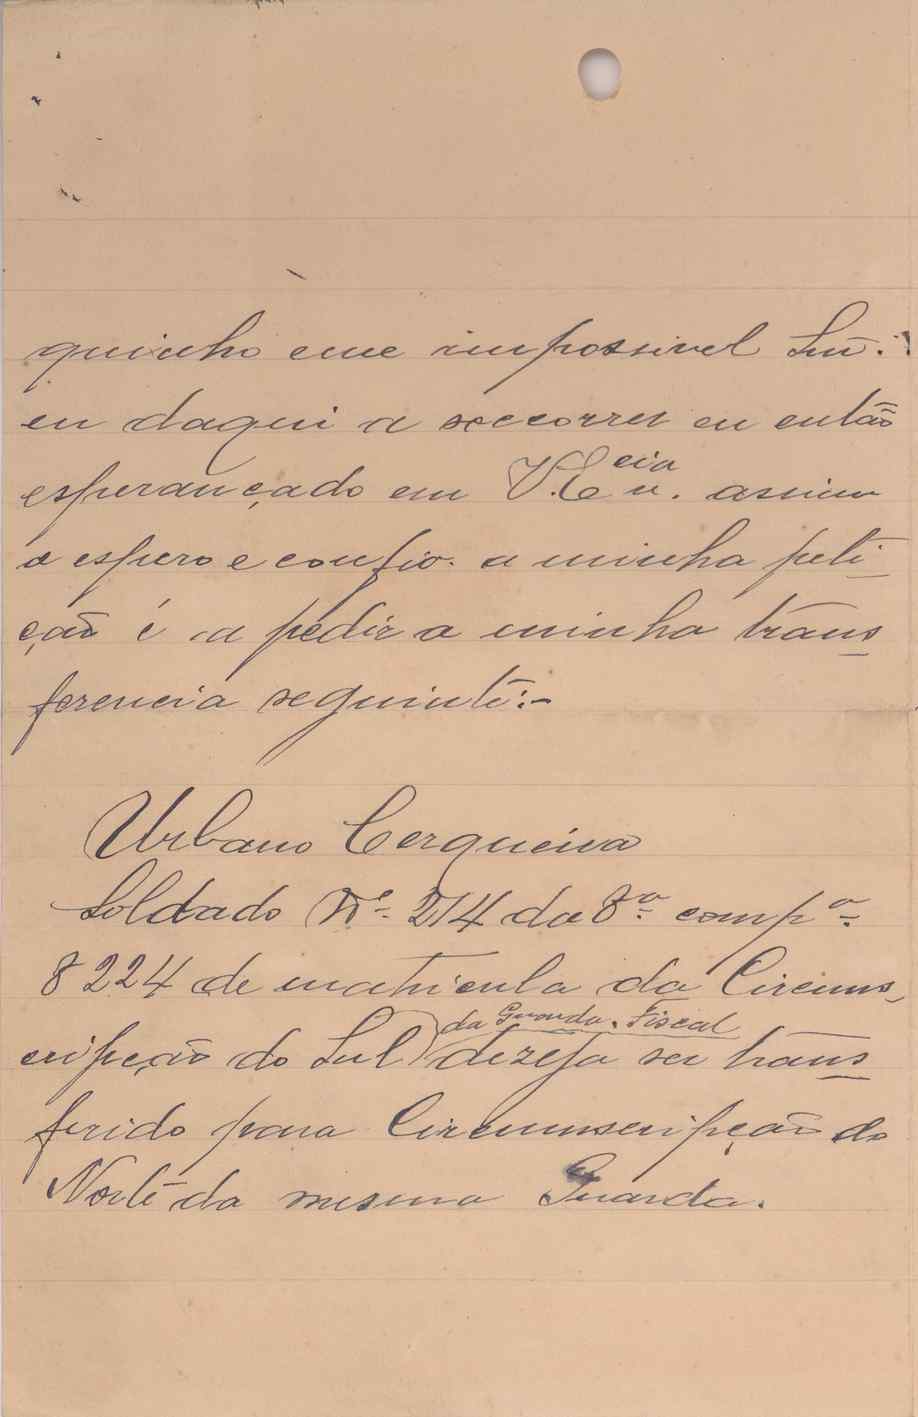 quinho eme impossivel Snr.
eu daqui a soccorrer eu então
esperançado em V. Ecia n. assim
o espero e confio. a minha peti
ção é a pedir a minha trans
ferencia seguinte:-
Urbano Cerqueira
Soldado Nº. 214 da 8ª. compª.
8224 de matricula da Circums,
cripção do Sul da Guarda. Fiscal dezeja ser trans
ferido para Circumscripção do
Norte da mesma Guarda.